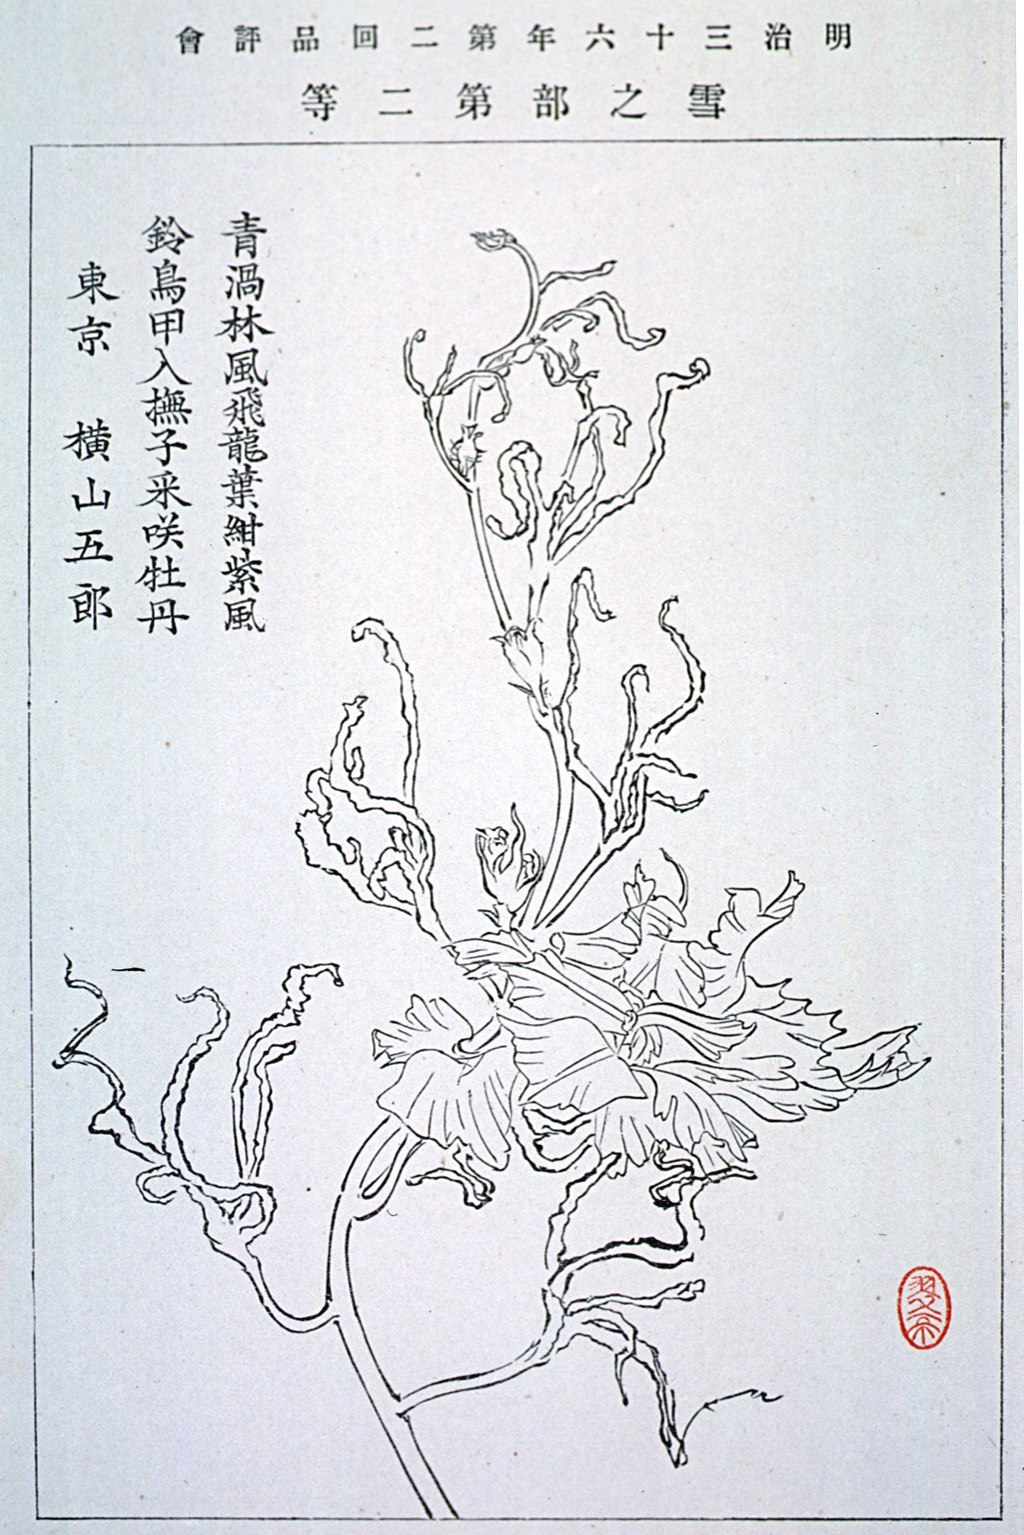 明治三十六年第二回品評會
雪之部第二等
青渦林風飛龍葉紺紫風
鈴鳥甲入撫子采咲牡丹
東京 横山五郎